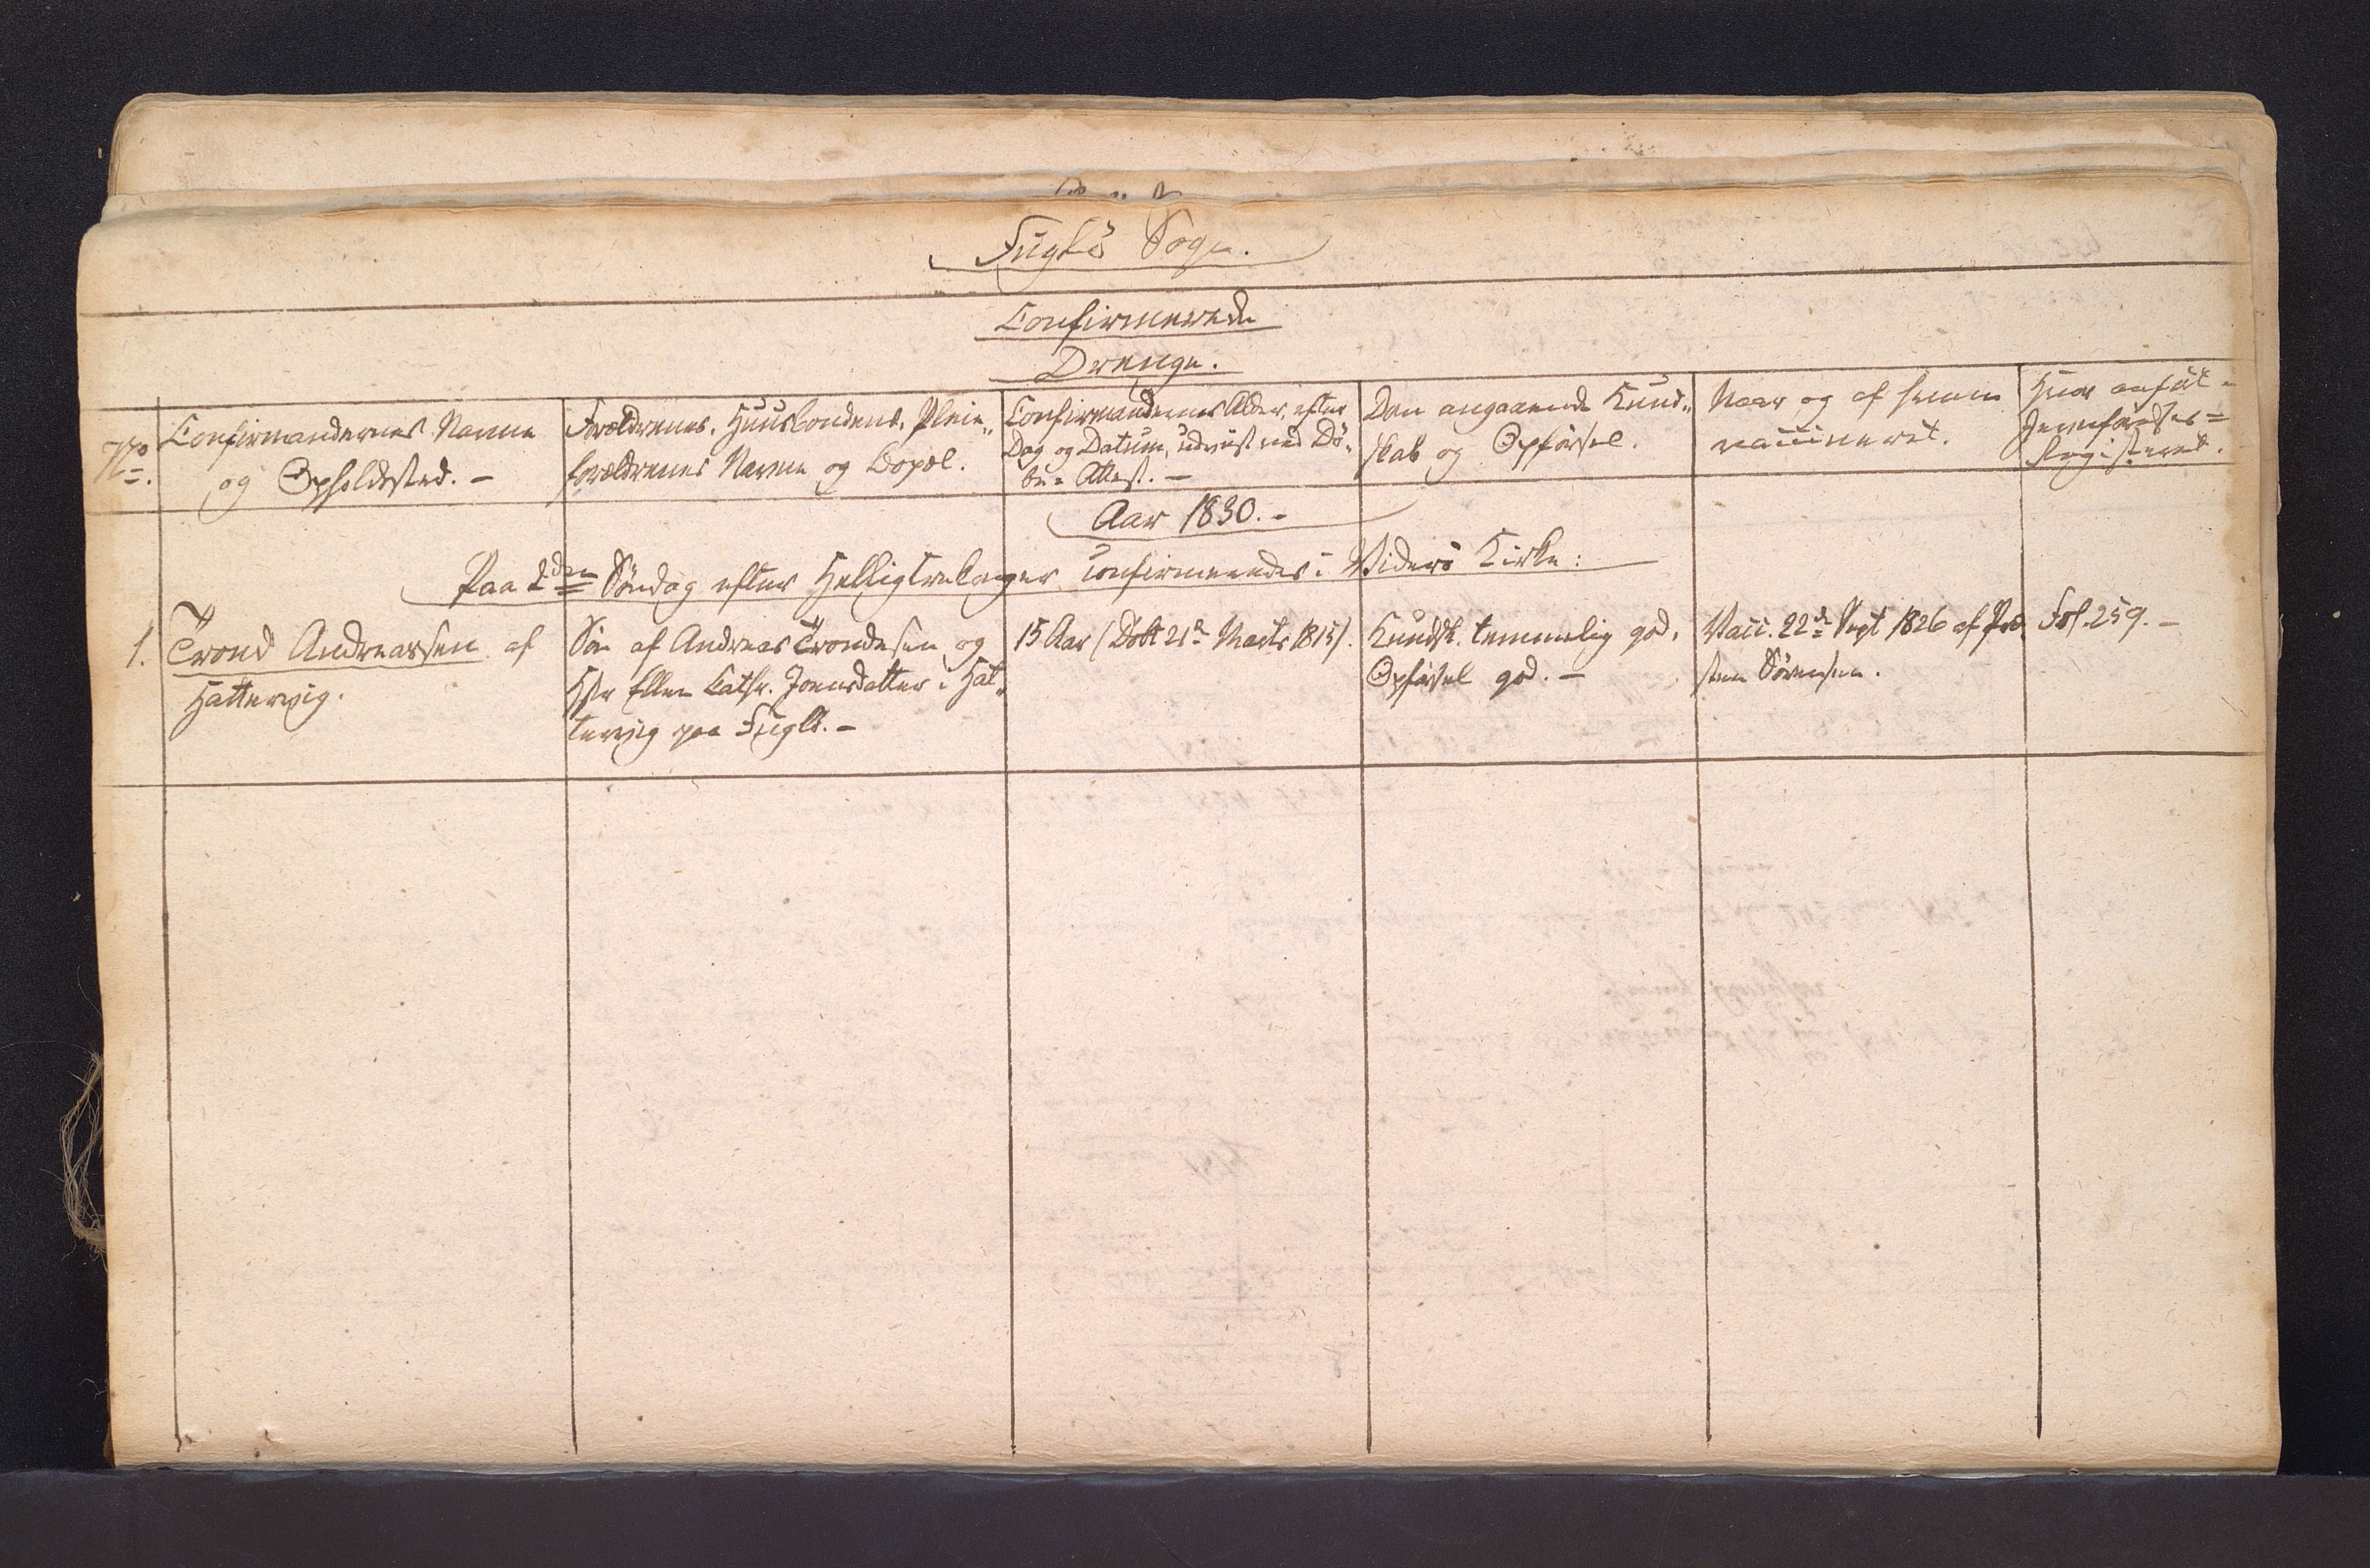 Fuglö Sogn.
Confirmerede
Drenge.
No.
Confirmandernes Navne
og Opholdssted. -
Forældrenes, Huusbondens, Pleie„
forældrenes Navne og Bopæl.
Confirmandernes Alder, efter
Dag og Datum, udviist ved Dö-
be=Attest. -
Dom angaaende Kund„
skab og Opförsel.
Naar og af hvem
vaccineret.
Hvor anfört i
Jevnförelses=
Registeret.
Aar 1830. -
Paa 2den Söndag efter Helligtrekonger confirmeredes i Viderö Kirke:
1.
Trond Andreassen af
Hattervig.
Sön af Andreas Trondesen og
Hstr Ellen Cathr. Joensdatter i Hat„
tervig paa Fuglö. -
15 Aar (Döbt 21de Marts 1815).
Kundsk. temmelig god,
Opförsel god. -
Vacc. 22de Sept 1826 af Præ
sten Sörensen.
Fol. 259. -